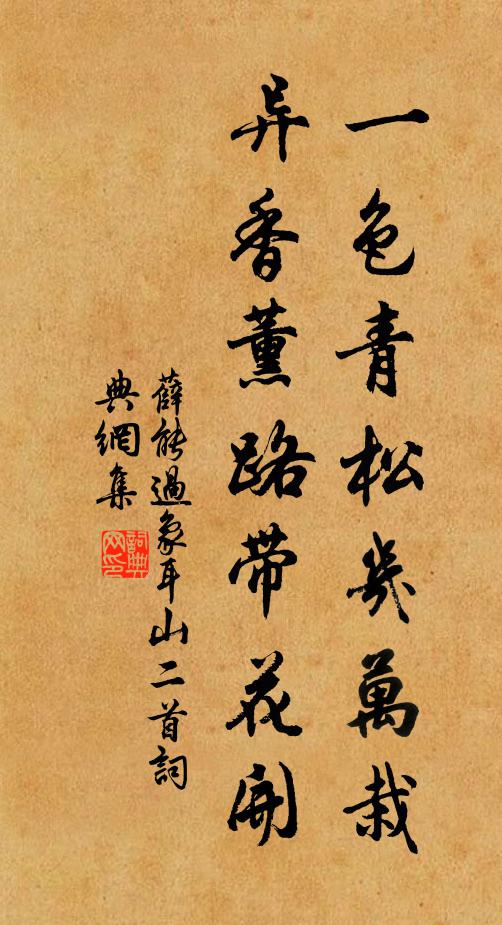 一色青松幾萬栽
异香薰路带花開
薛能過象耳山二首詞
典網集
詞典網印